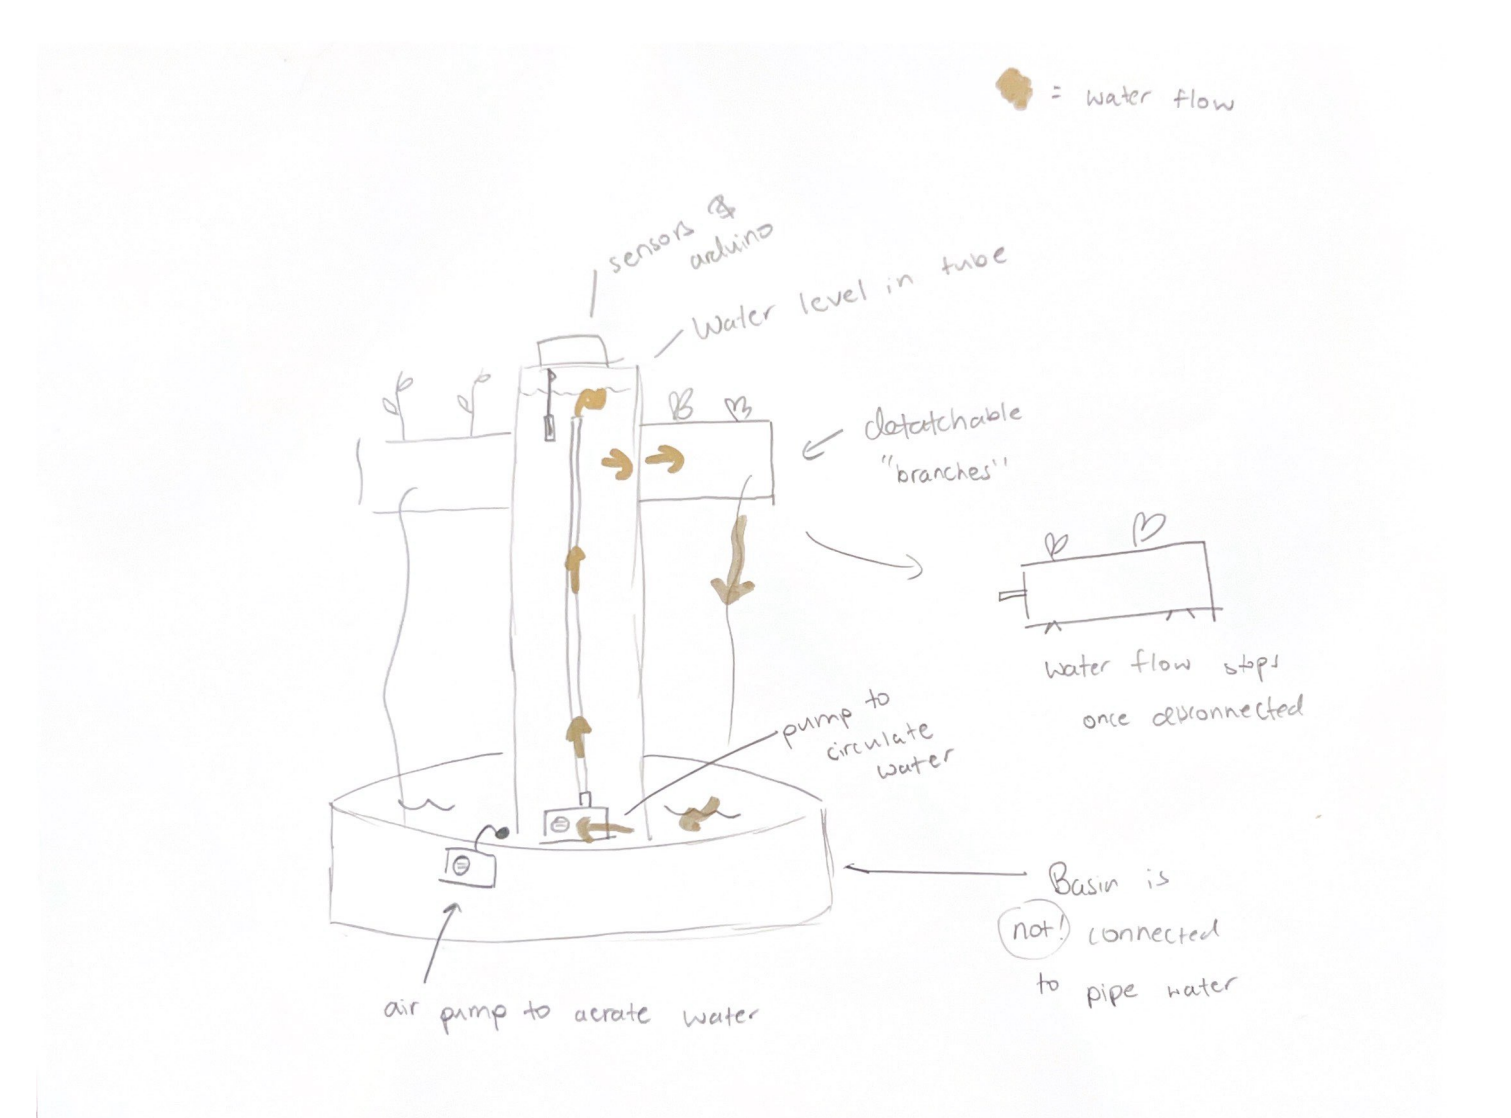 = water flow
sensors &
arduino
Water level in tube
detatchable
"branches"
water flow stops
once disconnected
pump to
circulate
water
Basin is
not! connected
to pipe water
air pump to aerate water